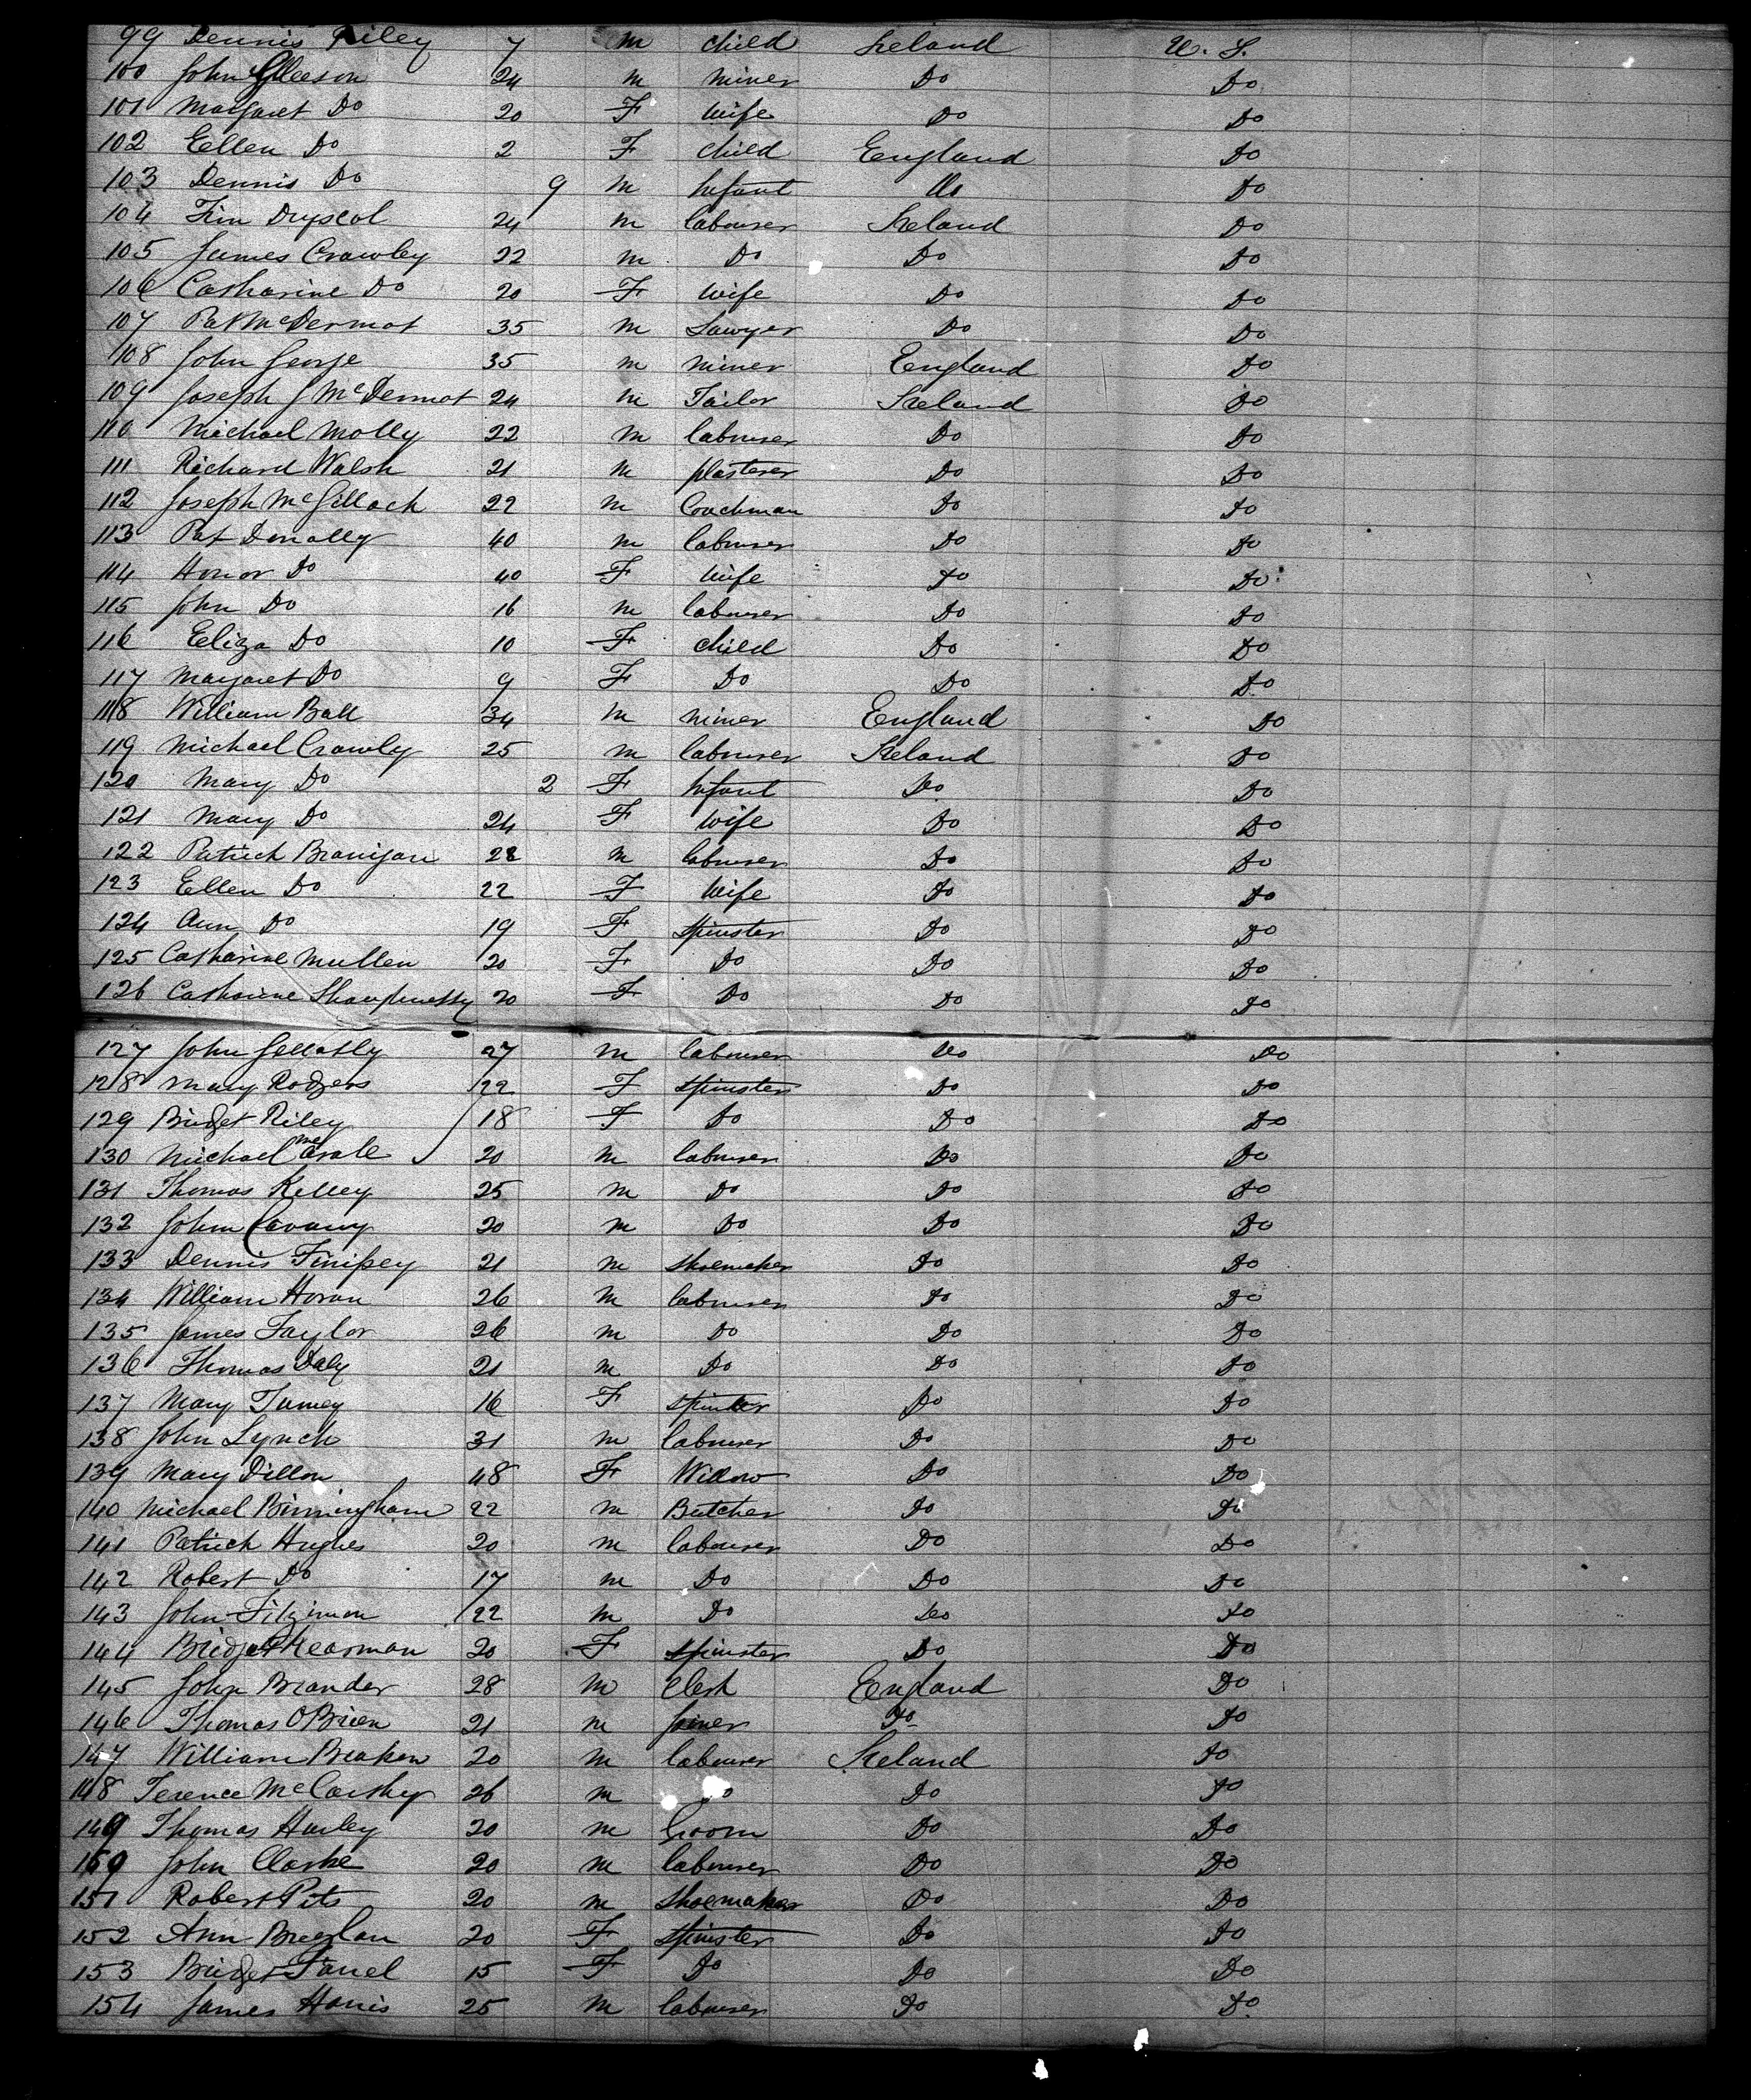 99 Dennis Riley 7 m child Ireland U. S.
100 John Gleeson 24 m miner Do Do
101 Margaret Do 20 F wife Do Do
102 Ellen Do 2 F child England Do
103 Dennis Do 9 m Infant Do Do
104 Tim Dryscol 24 m labourer Ireland Do
105 James Crowley 22 m Do Do Do
106 Catharine Do 20 F wife Do Do
107 Pat McDermot 35 m Sawyer Do Do
108 John George 35 m miner England Do
109 Joseph J McDermot 24 m Tailor Ireland Do
110 Michael Molly 22 m labourer Do Do
111 Richard Walsh 21 m plasterer Do Do
112 Joseph McGillock 22 m Coachman Do Do
113 Pat Donolly 40 m labourer Do Do
114 Honor Do 40 F wife Do Do
115 John Do 16 m labourer Do Do
116 Eliza Do 10 F child Do Do
117 Margaret Do 9 F Do Do Do
118 William Ball 34 m miner England Do
119 Michael Crowly 25 m labourer Ireland Do
120 Mary Do 2 F Infant Do Do
121 Mary Do 24 F wife Do Do
122 Patrick Branigan 28 m labourer Do Do
123 Ellen Do 22 F wife Do Do
124 Ann Do 19 F spinster Do Do
125 Catharine Mullen 20 F Do Do Do
126 Catharine 20 F Do Do Do
127 John Gellatly 27 m labourer Do Do
128 Mary Rodgers 22 F spinster Do Do
129 Bridget Riley 18 F Do Do Do
130 Michael 20 m labourer Do Do
131 Thomas Kelley 25 m Do Do Do
132 John Cavany 20 m Do Do Do
133 Dennis Finissey 21 m shoemaker Do Do
134 William Horan 26 m labourer Do Do
135 James Taylor 26 m Do Do Do
136 Thomas Daly 21 m Do Do Do
137 Mary Tumey 16 F spinster Do Do
138 John Lynch 31 m labourer Do Do
139 Mary Dillon 48 F Widow Do Do
140 Michael Birmingham 22 m Butcher Do Do
141 Patrick Hughes 20 m labourer Do Do
142 Robert Do 17 m Do Do Do
143 John Fitzimon 22 m Do Do Do
144 Bridget Kearman 20 F spinster Do Do
145 John Brander 28 m Clerk England Do
146 Thomas OBrien 21 m joiner Do Do
147 William Breaken 20 m labourer Ireland Do
148 Terence McCarthy 26 m Do Do Do
149 Thomas Hurley 20 m Groom Do Do
150 John Clarke 20 m labourer Do Do
151 Robert Pits 20 m Shoemaker Do Do
152 Ann Breezlan 20 F spinster Do Do
153 Bridget Farrel 15 F Do Do Do
154 James Harris 25 m labourer Do Do